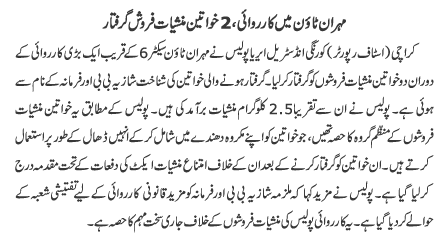 مہران ٹاؤن میں کارروائی، 2 خواتین منشیات فروش گرفتار
کراچی (اسٹاف رپورٹر) کورنگی انڈسٹریل ایریا پولیس نے مہران ٹاؤن سیکٹر 6 کے قریب ایک بڑی کارروائی کے
دوران دو خواتین منشیات فروشوں کو گرفتار کرلیا۔ گرفتار ہونے والی خواتین کی شناخت شازیہ بی بی اور فرمانہ کے نام سے
ہوئی ہے۔ پولیس نے ان سے تقریباً 2.5 کلوگرام منشیات برآمد کی ہیں۔ پولیس کے مطابق یہ خواتین منشیات
فروشوں کے منظم گروہ کا حصہ تھیں، جو خواتین کو اپنے مکروہ دھندے میں شامل کر کے انہیں ڈھال کے طور پر استعمال
کرتے ہیں۔ ان خواتین کو گرفتار کرنے کے بعد ان کے خلاف امتناع منشیات ایکٹ کی دفعات کے تحت مقدمہ درج
کرلیا گیا ہے۔ پولیس نے مزید کہا کہ ملزمہ شازیہ بی بی اور فرمانہ کو مزید قانونی کارروائی کے لیے تفتیشی شعبہ کے
حوالے کردیا گیا ہے۔ یہ کارروائی پولیس کی منشیات فروشوں کے خلاف جاری سخت مہم کا حصہ ہے۔